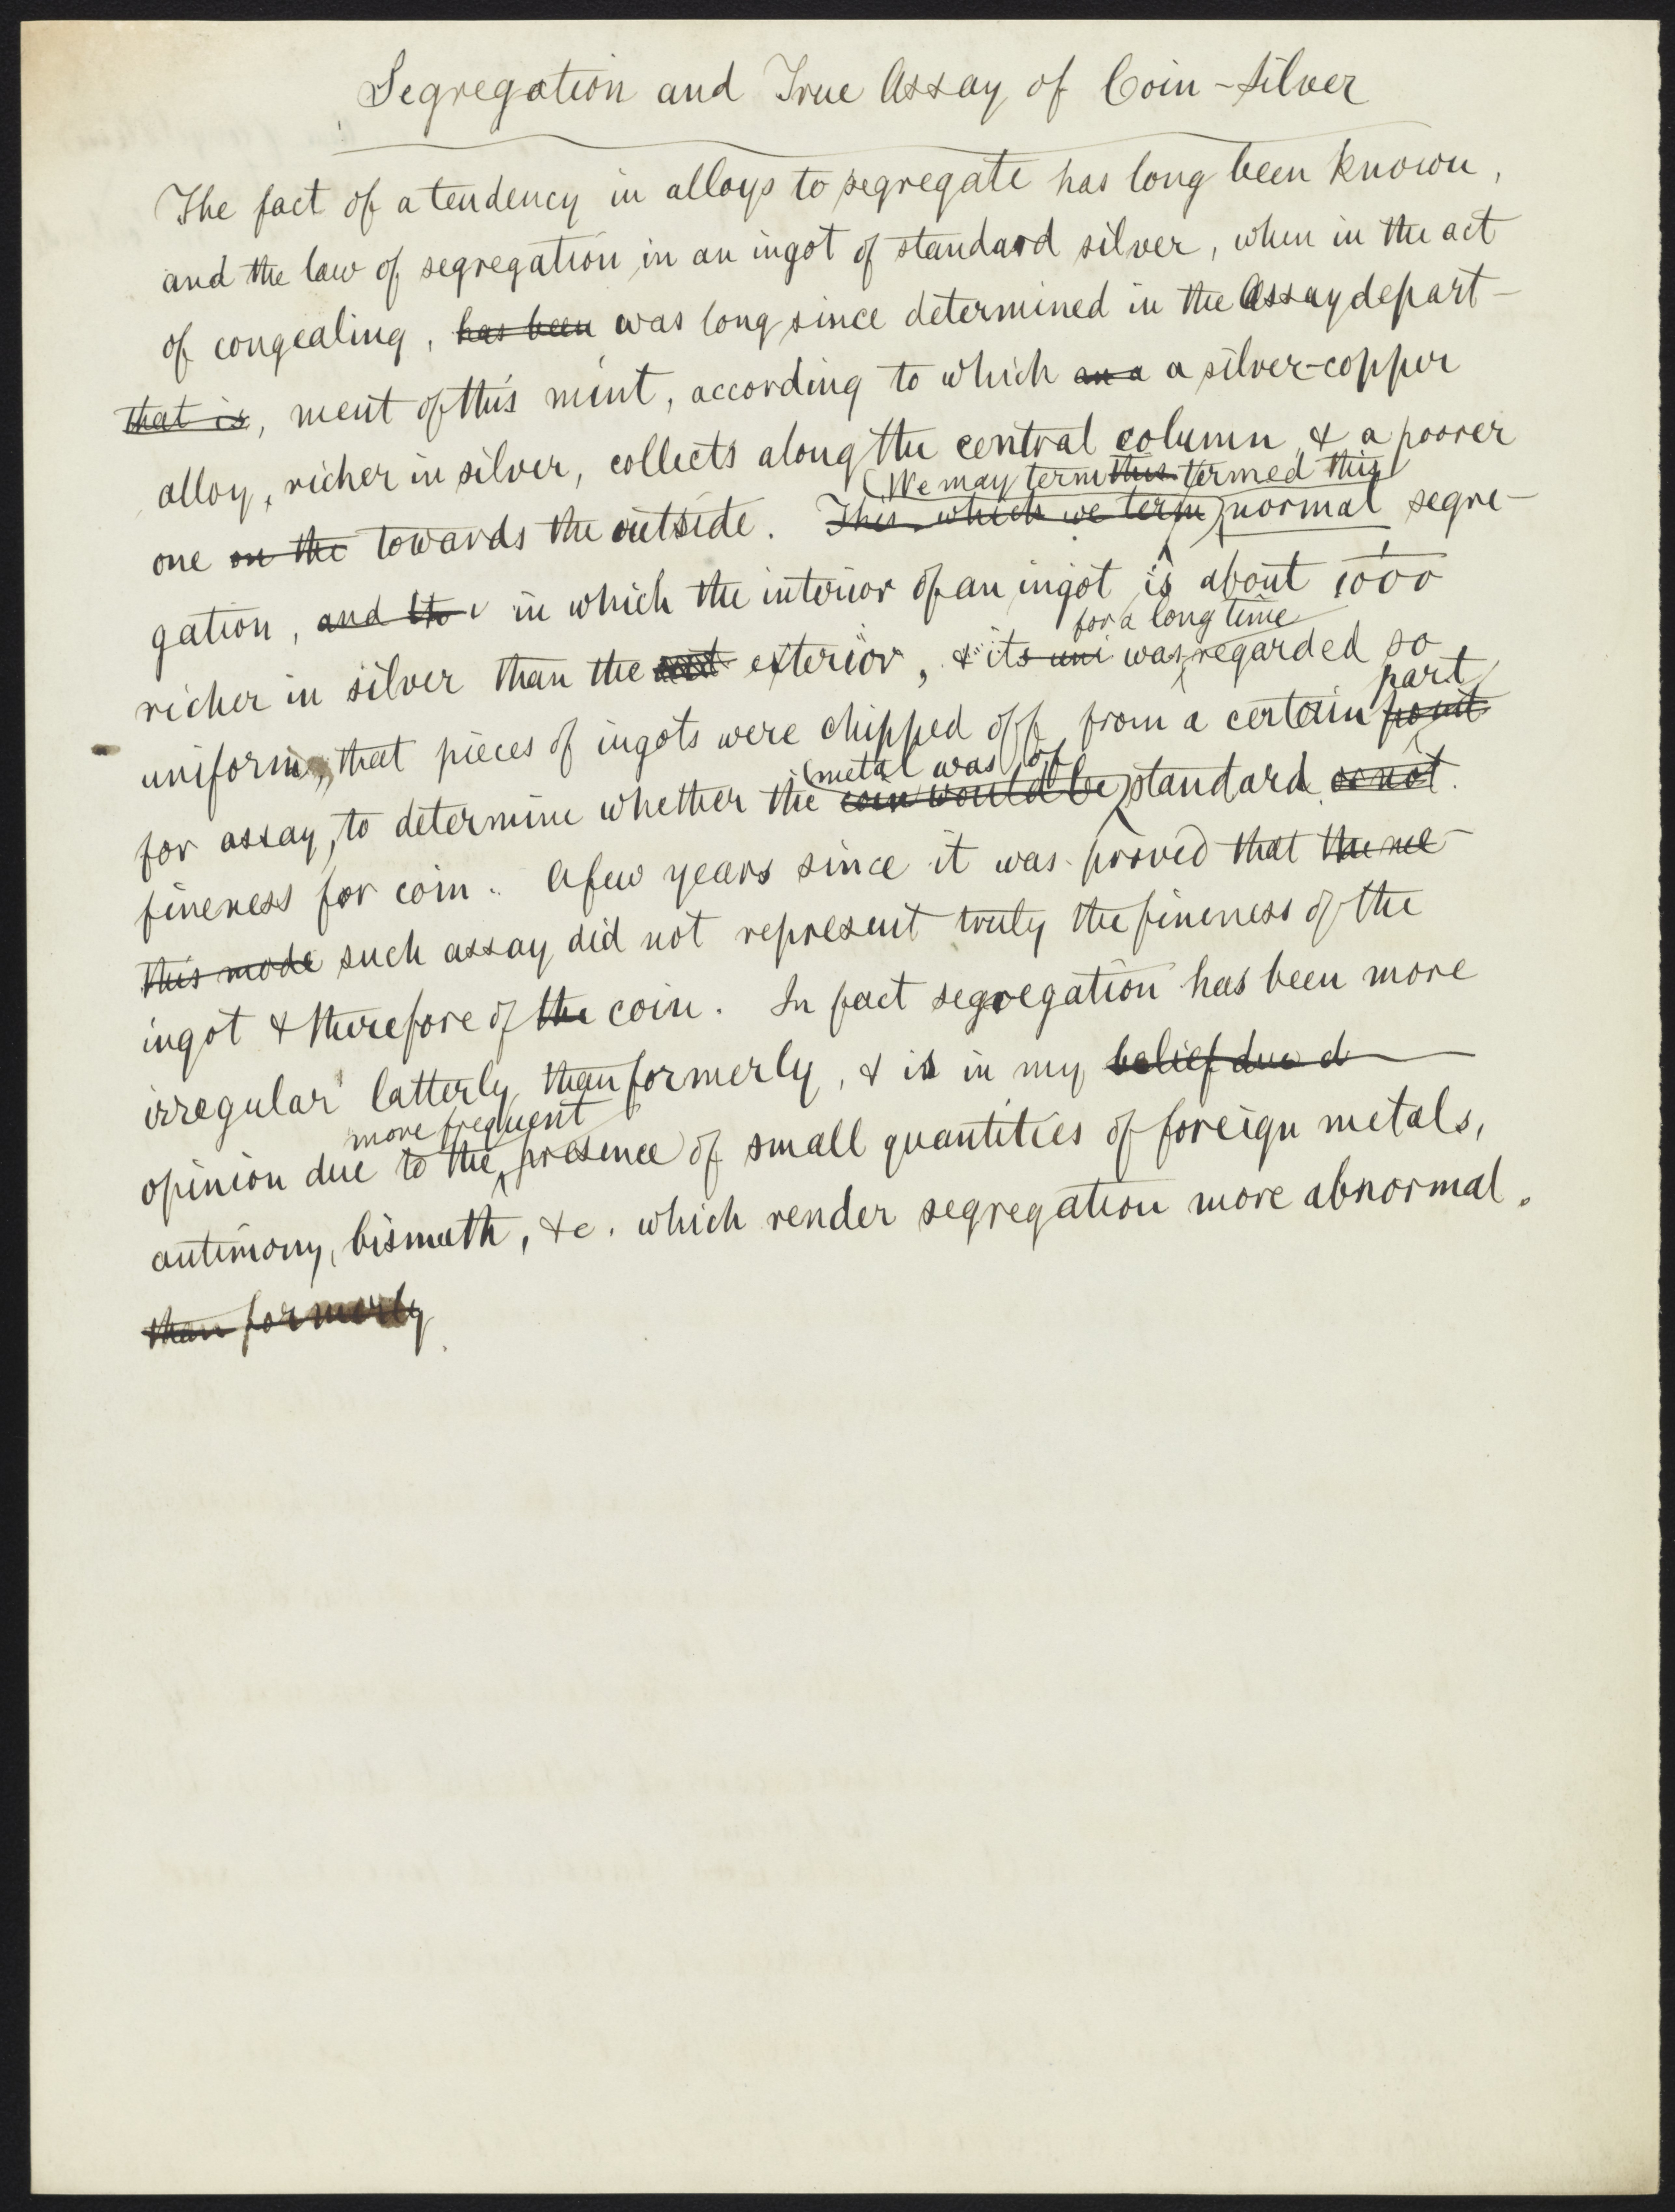 Segregation and True Assay of Coin-Silver
The fact of a tendency in alloys to segregate has long been known,
and the law of segregation in an ingot of standard silver, when in the act
of congealing, has been was long since determined in the Assay depart-
that is, ment of this mint, according to which an a a silver-copper
alloy, richer in silver, collects along the central column, & a poorer
(We may term this termed this
one on the towards the outside. This which we term) normal segre-
gation, and in which the interior of an ingot is about 1/1000
for a long time
richer in silver than the exterior, & its uni was regarded so
part
uniform, that pieces of ingots were chipped off from a certain point
(metal was of
for assay, to determine whether the coin would be) standard or not.
fineness for coin. A few years since it was proved that the me-
this mode such assay did not represent truly the fineness of the
ingot & therefore of the coin. In fact segregation has been more
irregular latterly than formerly, & is in my belief due d
more frequent
opinion due to the presence of small quantities of foreign metals,
antimony, bismuth, &c. which render segregation more abnormal.
than formerly